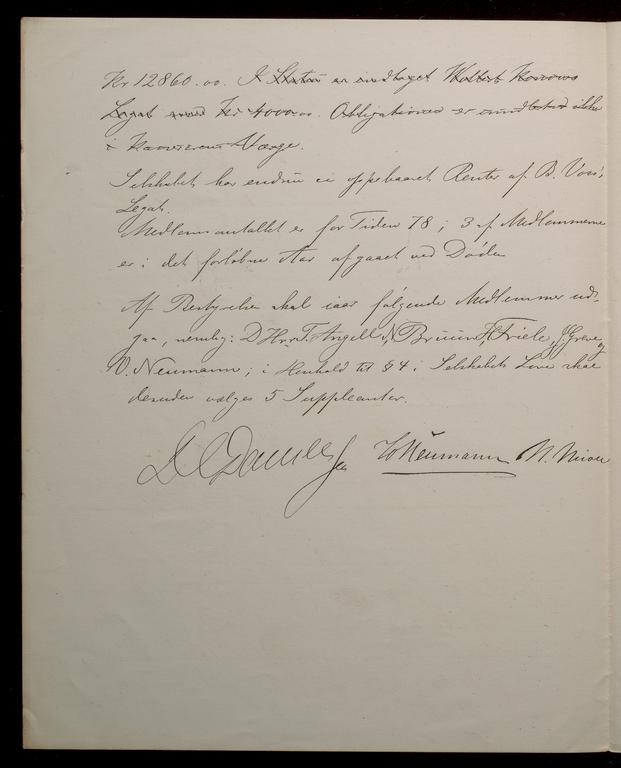 Kr 12860.00. I Status er indtaget Wollert Konows
Legat med Kr 4000.00. Obligationen er imidlertid ikke
i Kassererens Værge.
Selskabet har endnu ei oppebaaret Renter af B. Voss'
Legat.
Medlemsantallet er for Tiden 78; 3 af Medlemmerne
er i det forløbne Aar afgaaet ved Døden
Af Bestyrelsen skal iaar følgende Medlemmer ud-
gaa, nemlig: D'Hrr. T. Angell, N. Bruun, H. Friele, J. Greve og
W. Neumann; i Henhold til § 4 i Selskabets Love skal
desuden vælges 5 Suppleanter.
D C Danielssen W Neumann